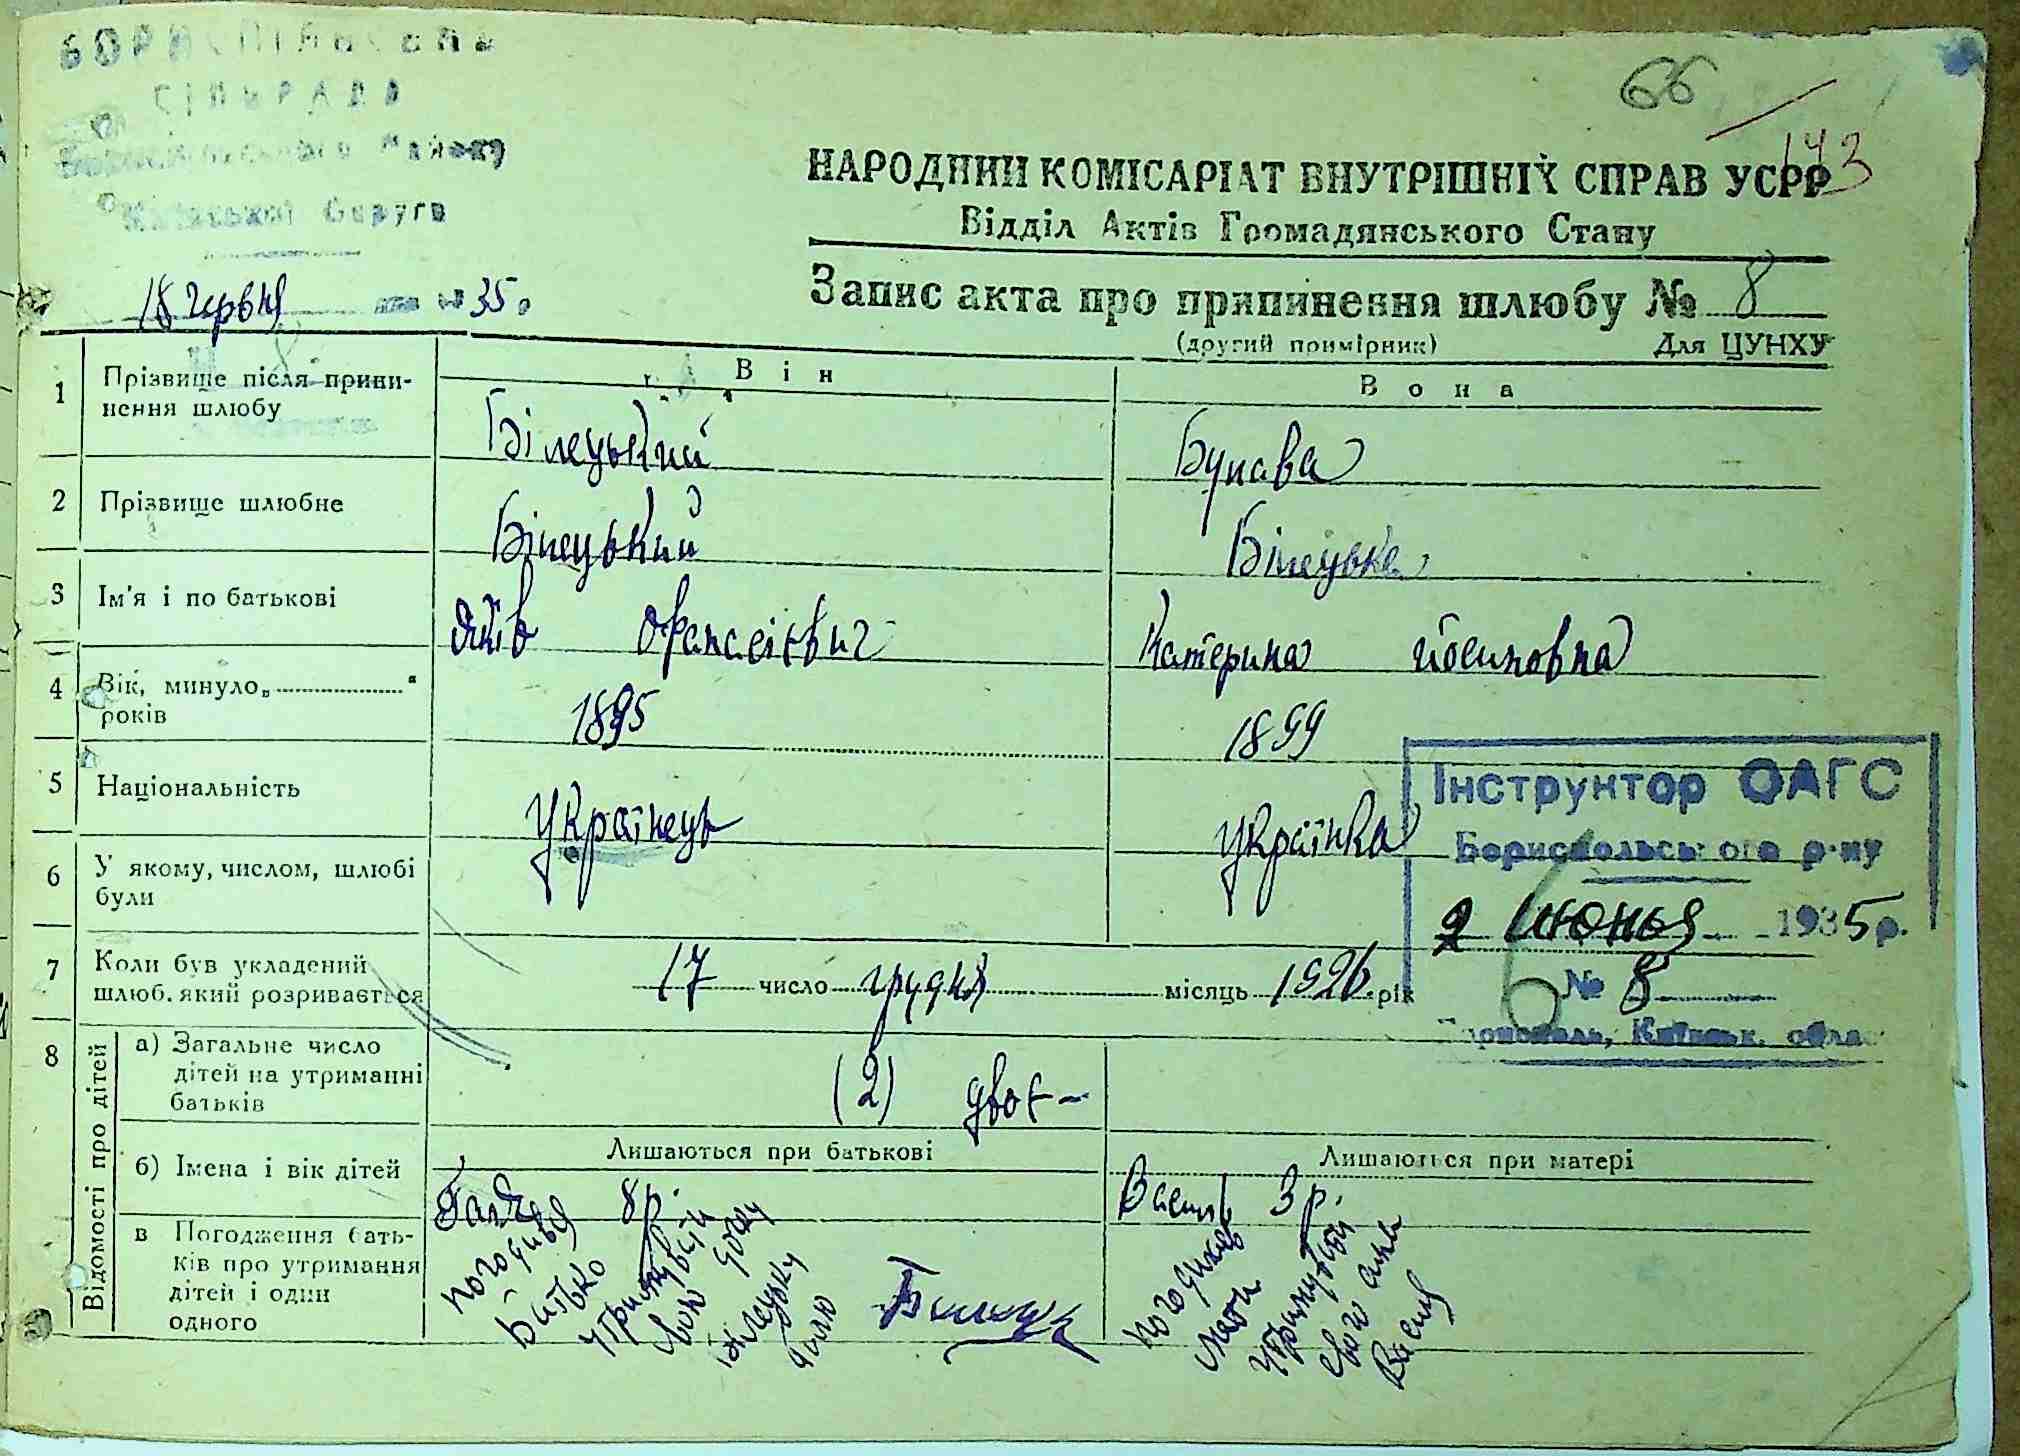 БОРИСПІЛЬСЬКА
СІЛЬРАДА
Району
Київської Округи
66
173
НАРОДНИЙ КОМІСАРІАТ ВНУТРІШНІХ СПРАВ УСРР
Відділ Актів Громадянського Стану
18 червня 35 р.
Запис акта про припинення шлюбу № 8
(другий примірник) Для ЦУНХУ
Він Вона
1 Прізвище після припи-
нення шлюбу
Білецький
2 Прізвище шлюбне
Білецький Білецька
3 Ім'я і по батькові
Яків Опанасієвич Катерина Йосиповна
4 Вік, минуло „ “
років
1895 1899
5 Національність
Українець Українка
Інструктор ОАГС
Бориспольського р-ну
2 июня 1935 р.
№ 8
Бориспіль, Київськ. облас
6 У якому, числом, шлюбі
були
7 Коли був укладений
шлюб, який розривається
17 число грудня місяць 1926 рік
8 Відомості про дітей
а) Загальне число
дітей на утриманні
батьків
(2) двоє -
б) Імена і вік дітей
Лишаються при батькові Лишаються при матері
Галя 8 р. Василь 3 р.
в Погодження бать-
ків про утримання
дітей і один
одного
погодився
батько
свою дочку
Білецьку
Галю
мати
свого сина
Василя